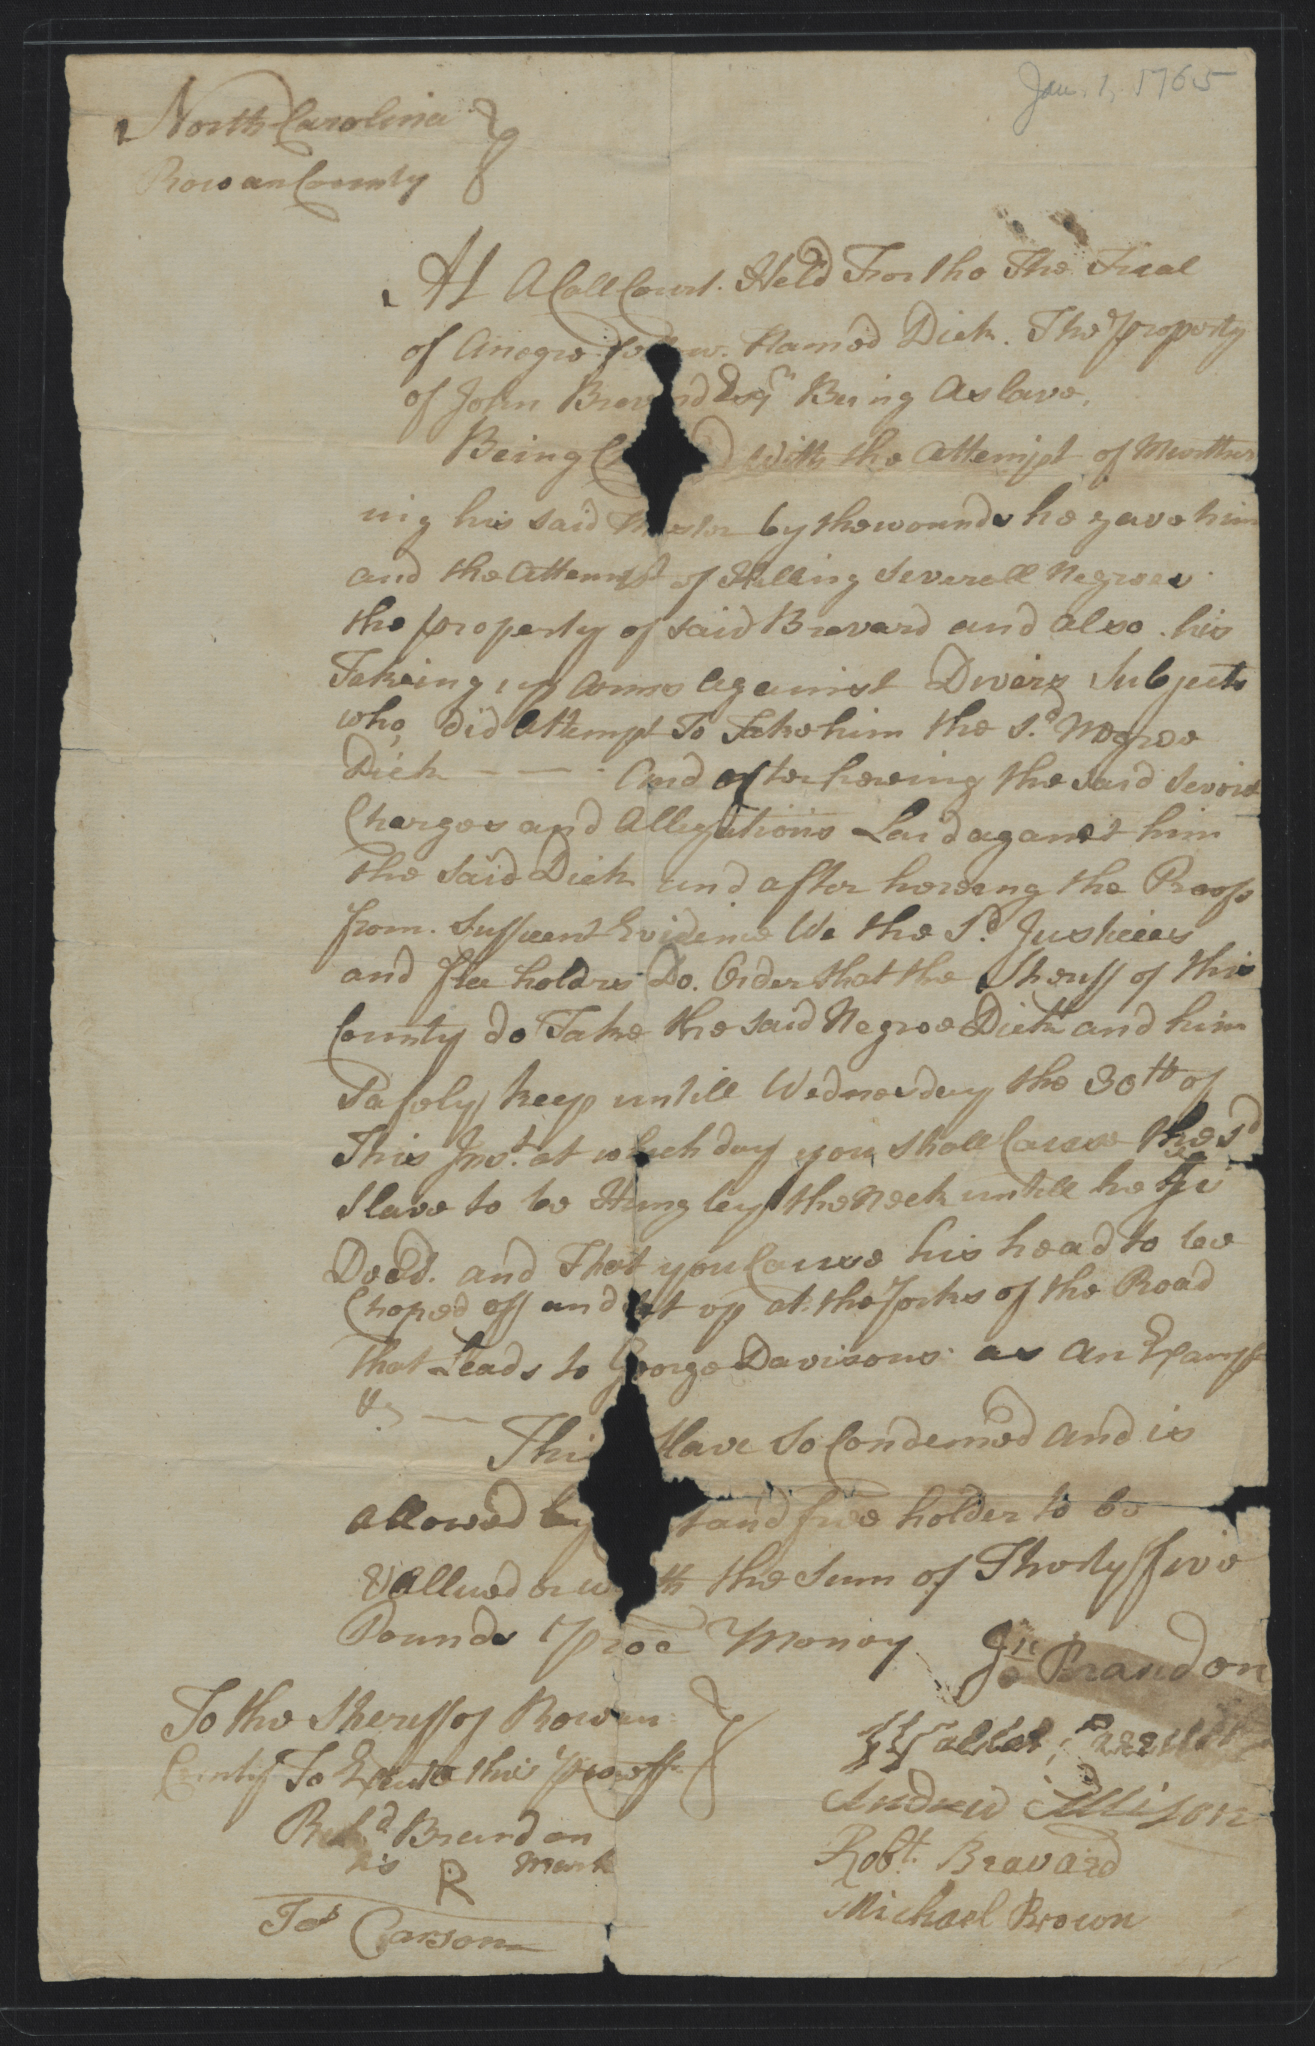 Jan. 1, 1765
North Carolina
Rowan County
At A Call Court. Held For tho The Trial
of Anegro fellow. Named Dick. The property
of John Brevard Esqr Being A slave.
Being with the Attempt of Murther
ing his said Master by the wounds he gave him
and the Attempt of Killing Severell Negroes
the property of said Brevard and also his
Takeing up Arms Against Diverz Subjects
who, did Attempt To Take him the sd. Negroe
Dick - - - And after hereing the said
Charges and Allegations Laid aganst him
the said Dick and after hereing the Proofs
from Suffient Evidence We the Sd. Justices
and free holdrs Do. Order that the Sheriff of this
County do Take the said Negroe Dick and him
Safely keep untill Wednesday the 30th of
This Inst. at which day you shall Cause the sd
Slave to be Hung by the Neck untill he
Dead. and That you Cause his head to be
Choped off and set up at the forks of the Road
that Leads to George Davisons as An Example
This Slave So Condemned and is
allowed by and free holder to be
Vallued or worth the Sum of Thirty five
Pounds Proc Money
Jno Brandon
To the Sheriff of Rowan
County To Execute this
Andrew Allison
Richd Brandon
his R mark
Robt. Bravard
Michael Brown
Jas Carson